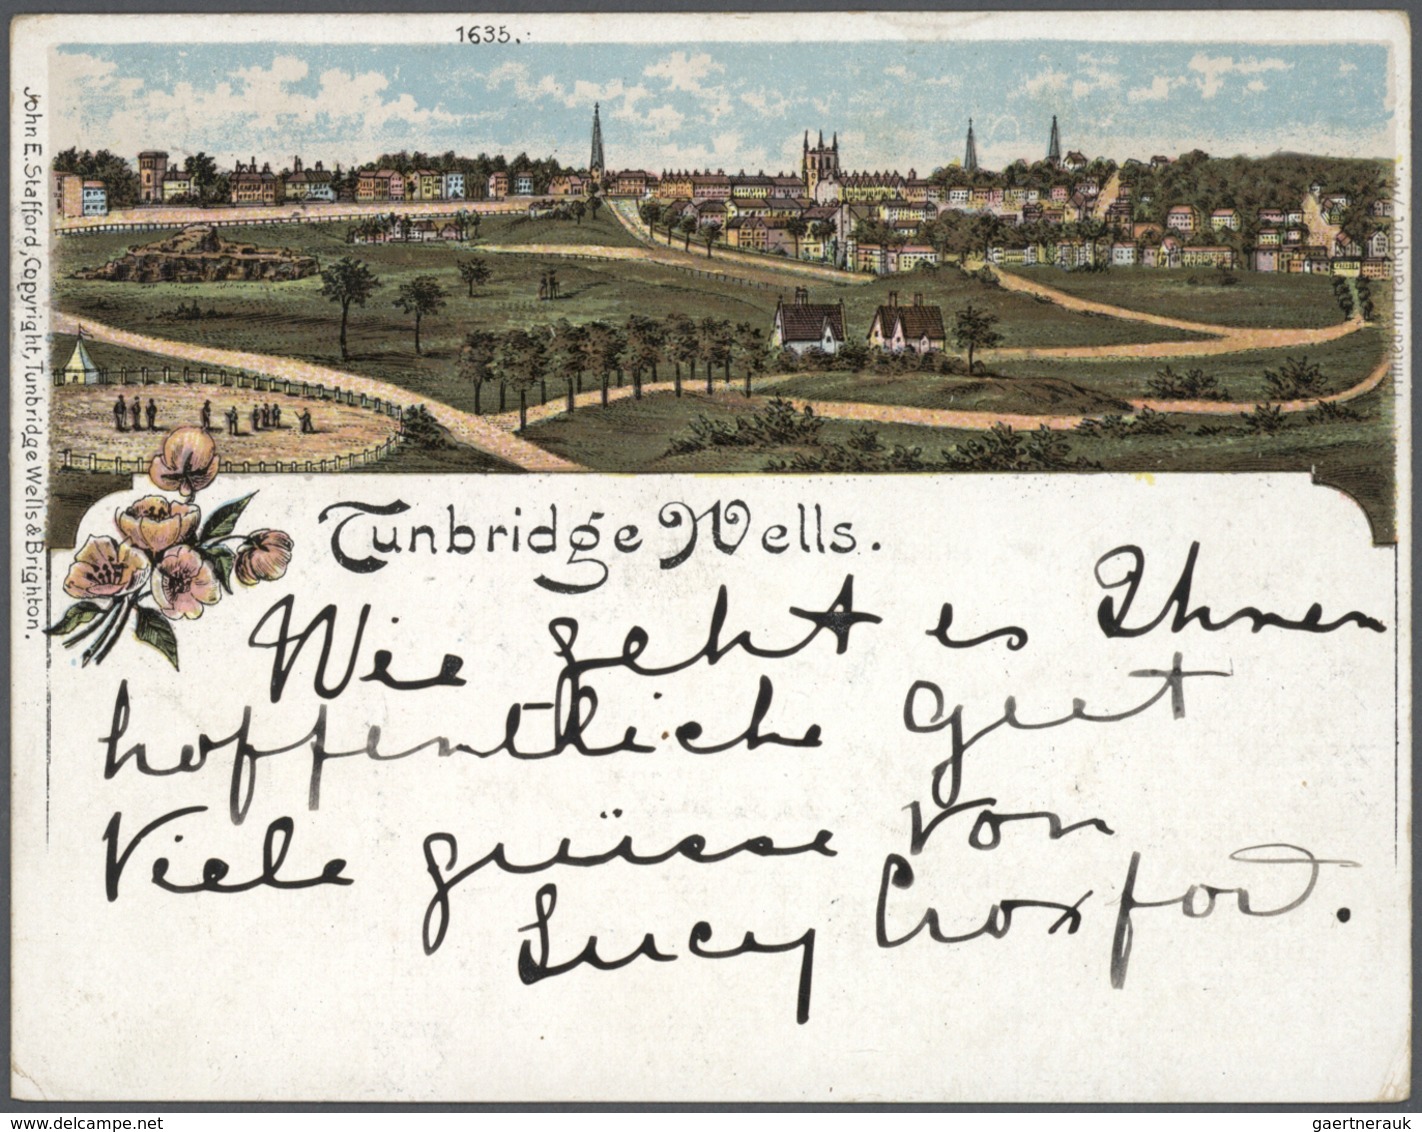 1635.:
John E. Stafford, Copyright, Tunbridge Wells & Brighton.
Tunbridge Wells.
Wie geht es Ihnen
hoffentliche geet
Viele grüsse von
Lucy Croxford.
www.delcampe.net
gaertnerauk